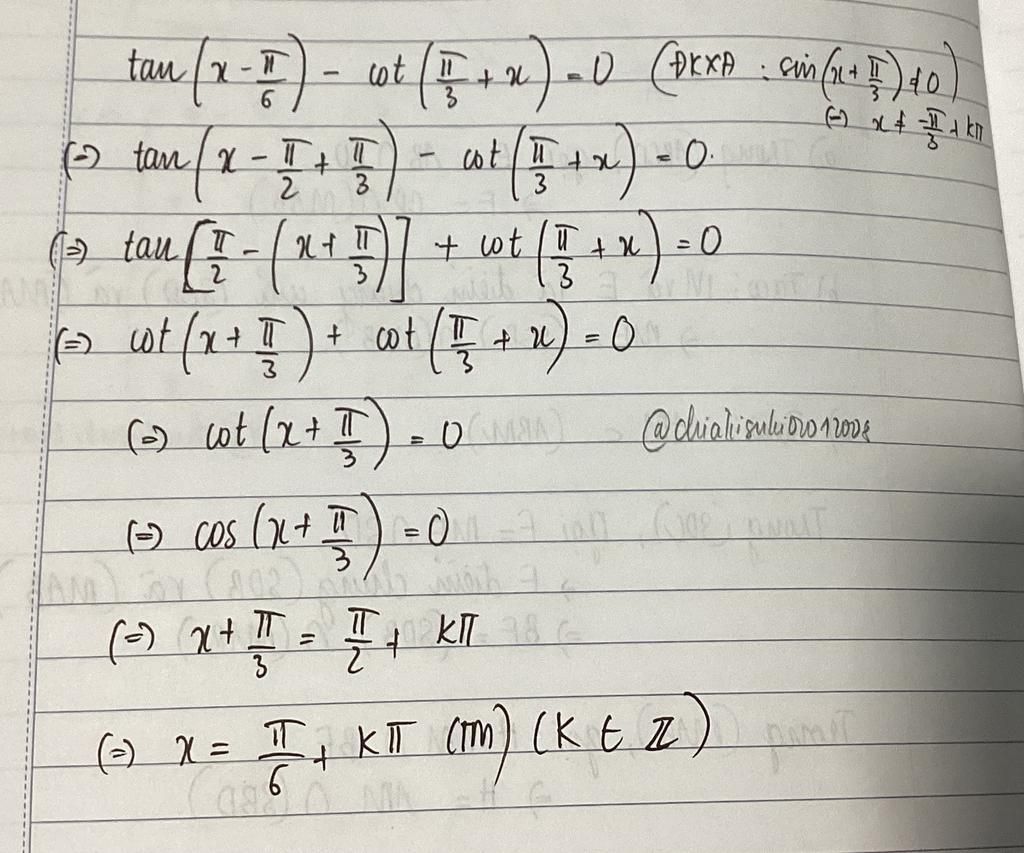 tan(x - π/6) - cot(π/3 + x) = 0 (ĐKXĐ : sin(x + π/3) ≠ 0)
(=) x ≠ -π/3 + kπ
(=) tan(x - π/2 + π/3) - cot(π/3 + x) = 0.
(=) tan[π/2 - (x + π/3)] + cot(π/3 + x) = 0
(=) cot(x + π/3) + cot(π/3 + x) = 0
(=) cot(x + π/3) = 0
(=) cos(x + π/3) = 0
(=) x + π/3 = π/2 + kπ
(=) x = π/6 + kπ (TM) (k ∈ Z)